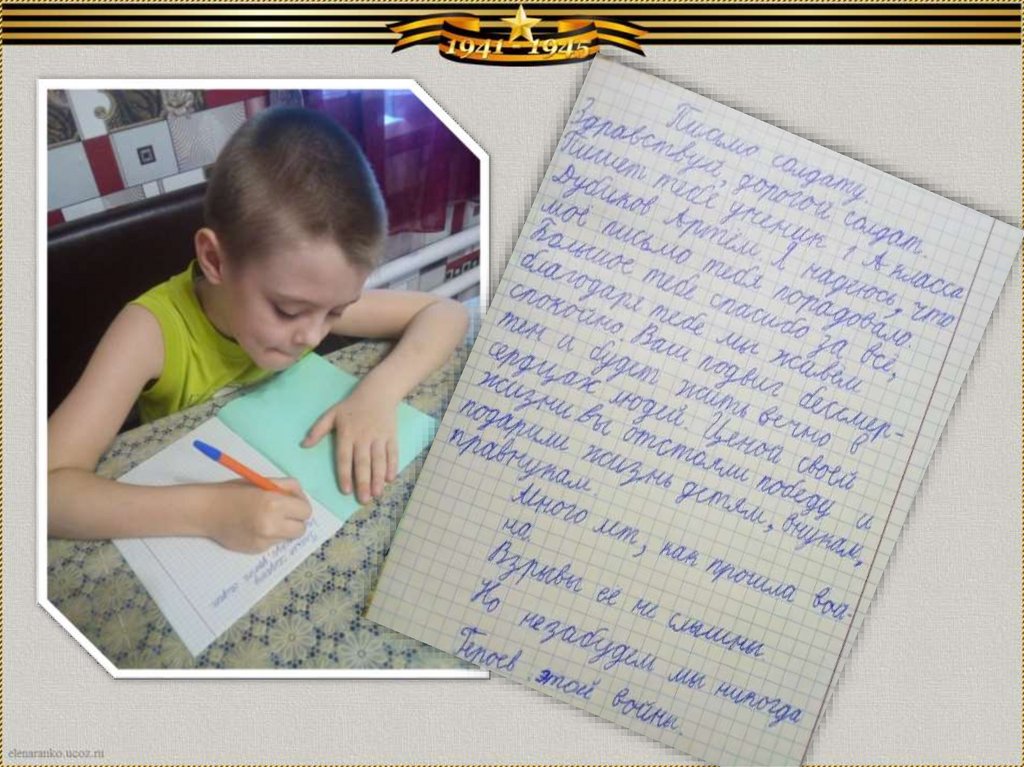 1941 - 1945
Письмо солдату
Здравствуй, дорогой солдат.
Пишет тебе ученик 1 А класса
Дубиков Артём. Я надеюсь, что
моё письмо тебя порадовало.
Большое тебе спасибо за всё,
благодаря тебе мы живём
спокойно. Ваш подвиг бессмер-
тен и будет жить вечно в
сердцах людей. Ценой своей
жизни вы отстояли победу и
подарили жизнь детям, внукам,
правнукам.
Много лет, как прошла вой-
на.
Взрывы её не слышны
Но незабудем мы никогда
Героев этой войны.
elenaranko.ucoz.ru